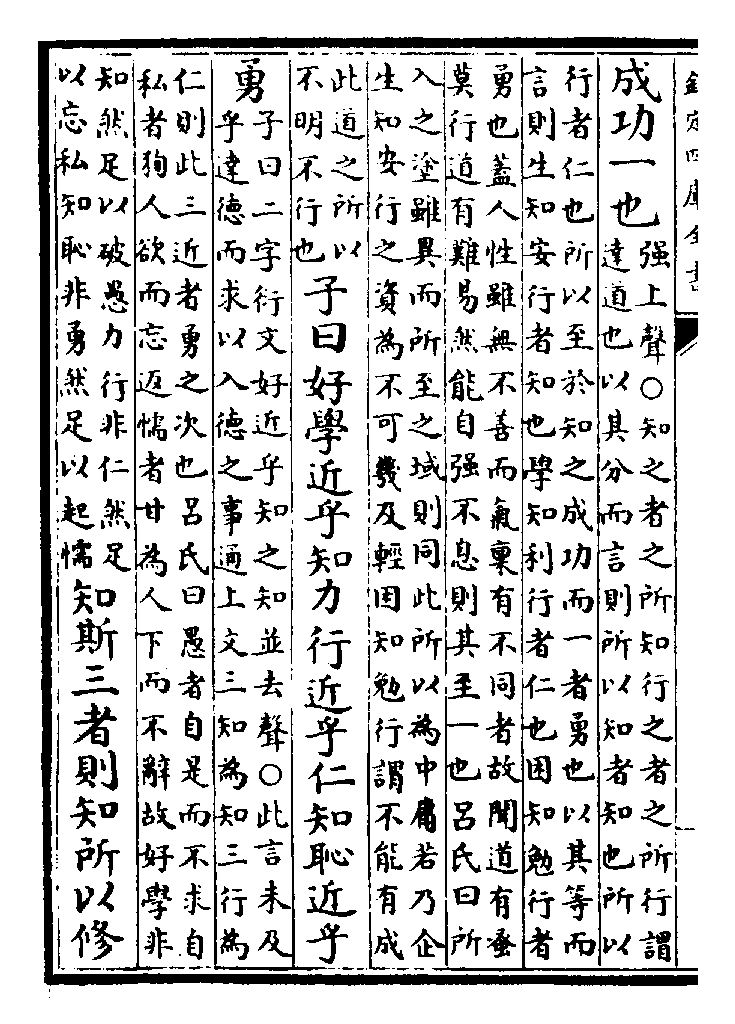 欽定四庫全書
成功一也
强上聲○知之者之所知行之者之所行謂
達道也以其分而言則所以知者知也所以
行者仁也所以至於知之成功而一者勇也以其等而
言則生知安行者知也學知利行者仁也困知勉行者
勇也蓋人性雖無不善而氣稟有不同者故聞道有蚤
莫行道有難易然能自强不息則其至一也呂氏曰所
入之塗雖異而所至之域則同此所以為中庸若乃企
生知安行之資為不可幾及輕困知勉行謂不能有成
此道之所以
不明不行也
子曰好學近乎知力行近乎仁知恥近乎
勇
子曰二字衍文好近乎知之知並去聲○此言未及
乎達德而求以入德之事通上文三知為知三行為
仁則此三近者勇之次也呂氏曰愚者自是而不求自
私者狥人欲而忘返懦者甘為人下而不辭故好學非
知然足以破愚力行非仁然足
以忘私知恥非勇然足以起懦
知斯三者則知所以修